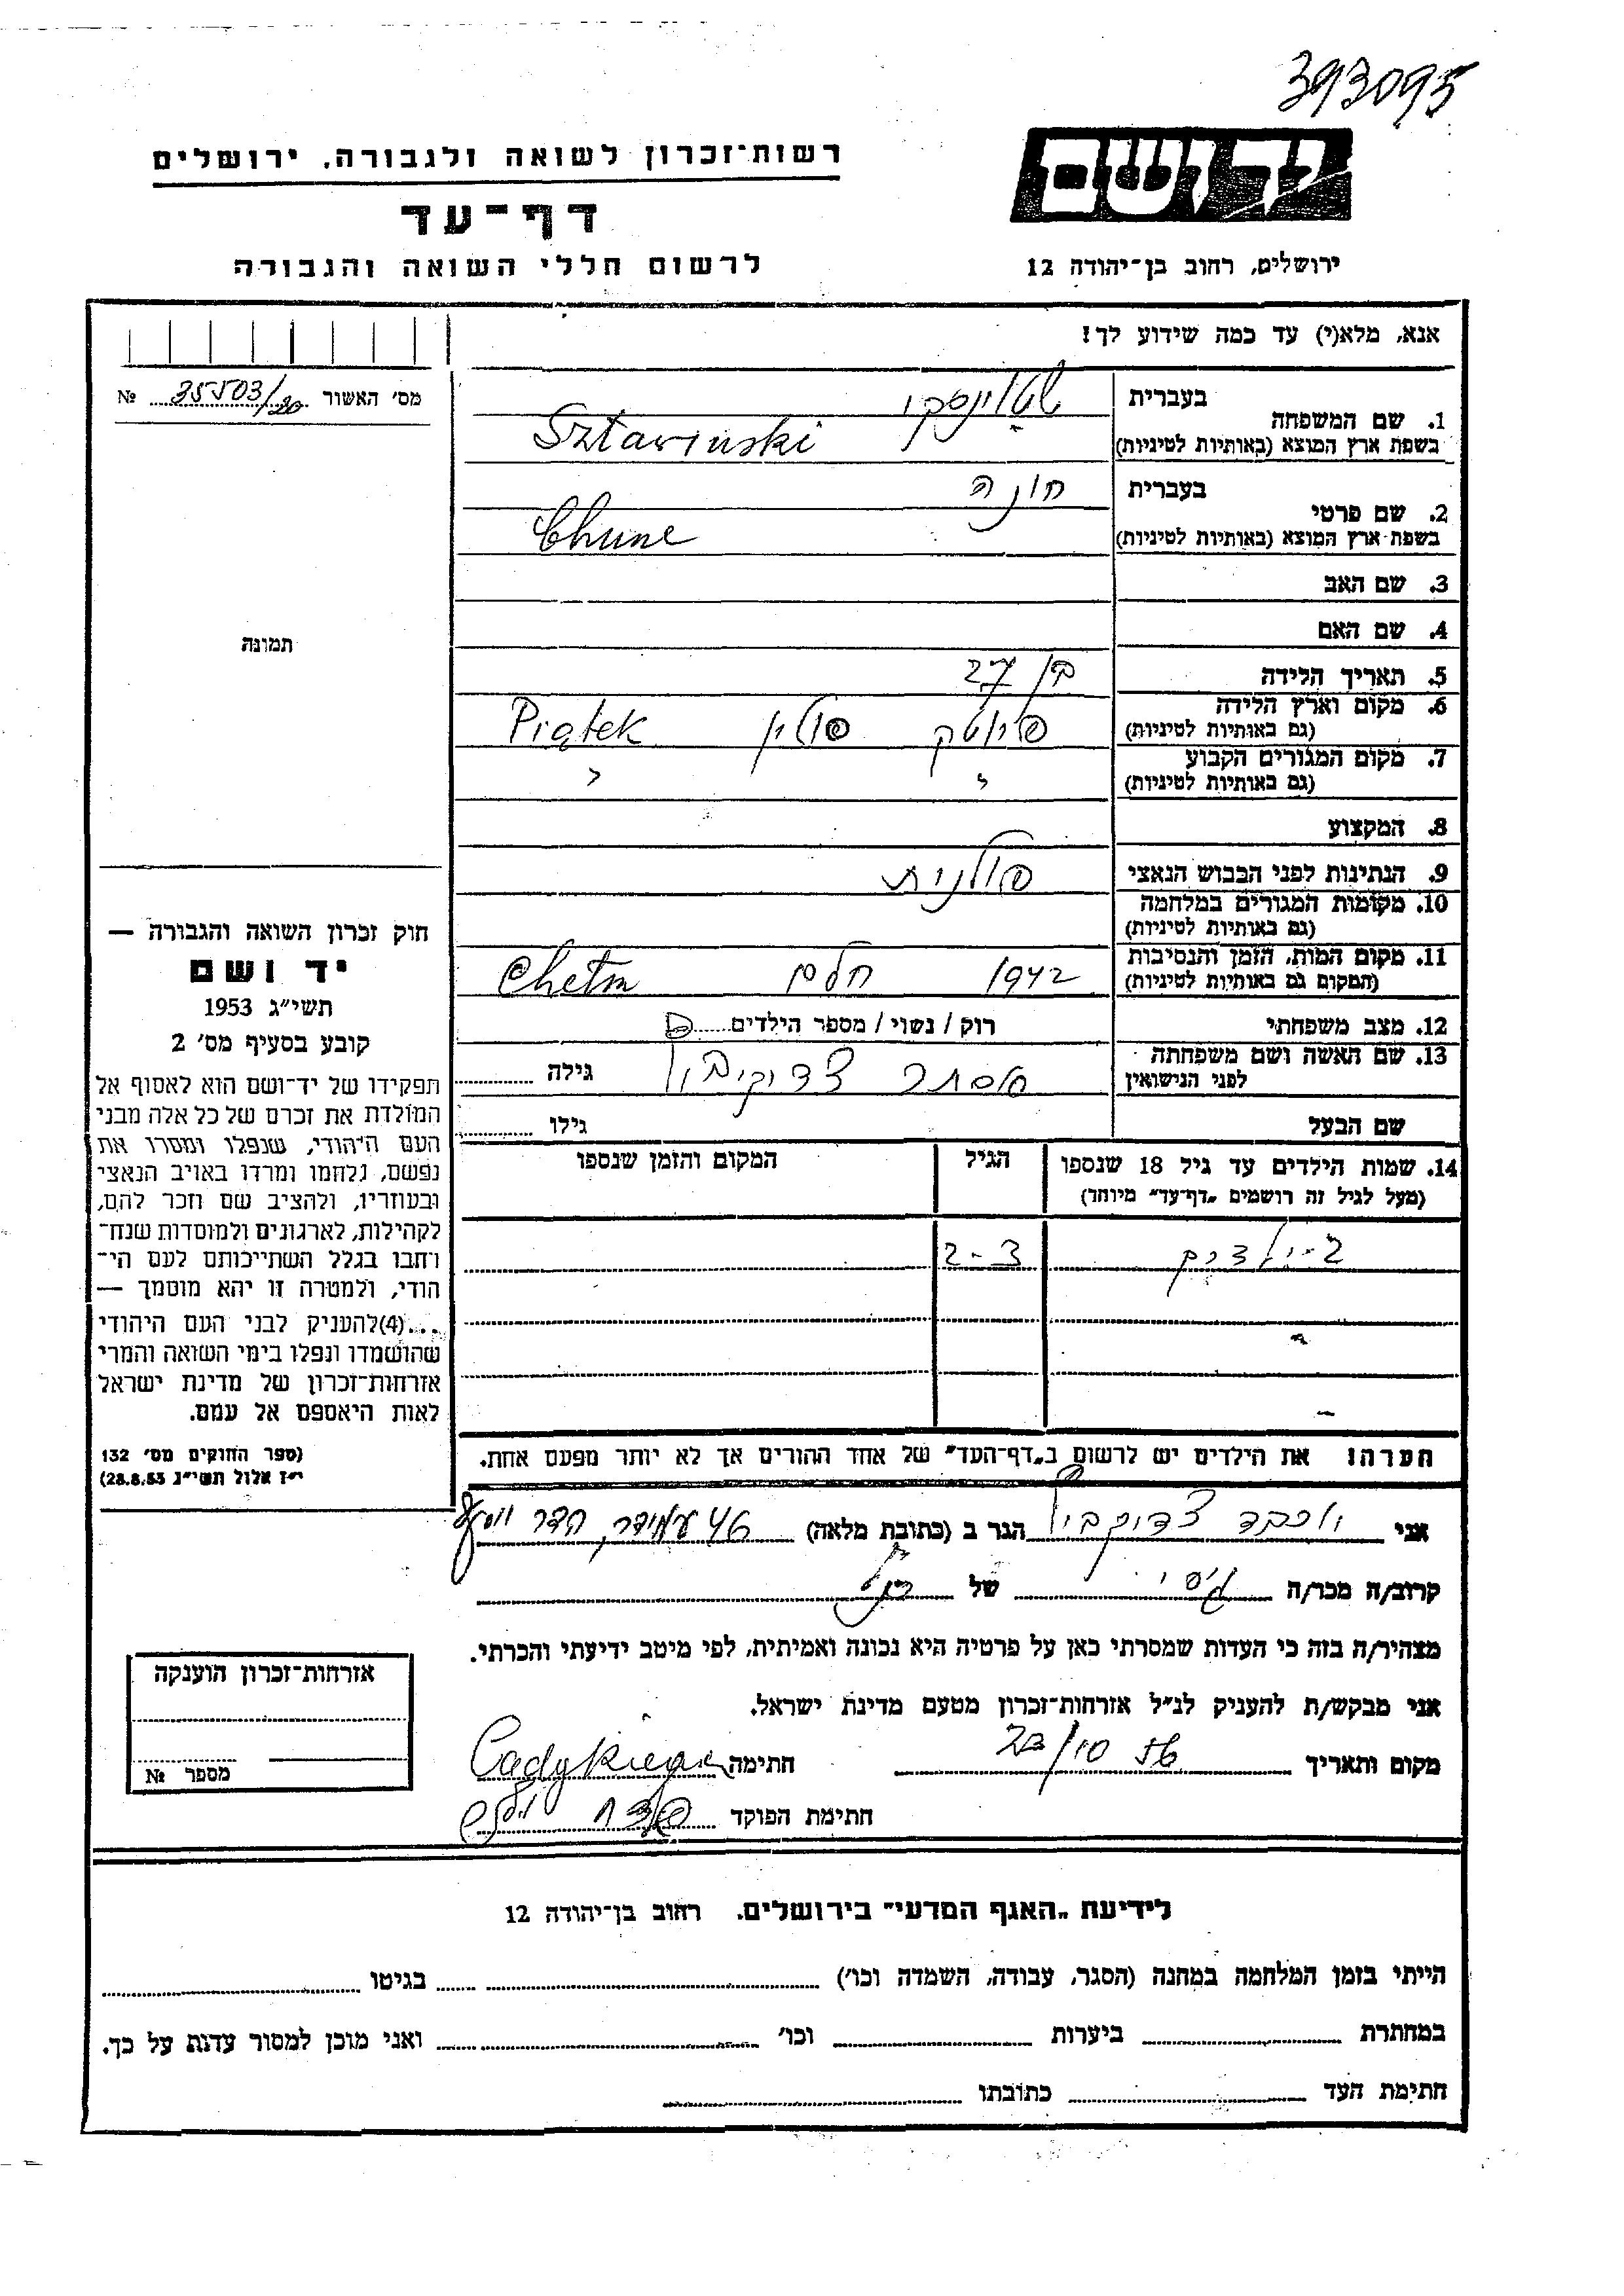 393095
יד ושם
רשות־זכרון לשואה ולגבורה, ירושלים
דף־עד
לרשום חללי השואה והגבורה
ירושלים, רחוב בן־יהודה 12
אנא, מלא(י) עד כמה שידוע לך!
מס' האשור 35503/20 №
תמונה
1. שם המשפחה
בעברית שטאוינסקי
בשפת ארץ המוצא (באותיות לטיניות) Sztawinski
2. שם פרטי
בעברית חונה
בשפת־ארץ המוצא (באותיות לטיניות) Chune
3. שם האב
4. שם האם
5. תאריך הלידה בן 27
6. מקום וארץ הלידה (גם באותיות לטיניות) פיונטק פולין Piątek
7. מקום המגורים הקבוע (גם באותיות לטיניות) " "
8. המקצוע
9. הנתינות לפני הכבוש הנאצי פולנית
10. מקומות המגורים במלחמה (גם באותיות לטיניות)
11. מקום המות, הזמן והנסיבות (המקום גם באותיות לטיניות) 1942 חלם Chełm
12. מצב משפחתי רוק / נשוי / מספר הילדים
13. שם האשה ושם משפחתה לפני הנישואין אסתר צדוקביץ גילה
שם הבעל גילו
14. שמות הילדים עד גיל 18 שנספו (מעל לגיל זה רושמים „דף־עד" מיוחד) הגיל המקום והזמן שנספו
2 - ילדים 2-3
הערה! את הילדים יש לרשום ב„דף־העד" של אחד ההורים אך לא יותר מפעם אחת.
חוק זכרון השואה והגבורה —
יד ושם
תשי"ג 1953
קובע בסעיף מס' 2
תפקידו של יד־ושם הוא לאסוף אל
המולדת את זכרם של כל אלה מבני
העם היהודי, שנפלו ומסרו את
נפשם, נלחמו ומרדו באויב הנאצי
ובעוזריו, ולהציב שם וזכר להם,
לקהילות, לארגונים ולמוסדות שנח־
רחבו בגלל השתייכותם לעם הי־
הודי, ולמטרה זו יהא מוסמך —
...(4)להעניק לבני העם היהודי
שהושמדו ונפלו בימי השואה והמרי
אזרחות־זכרון של מדינת ישראל
לאות היאספם אל עמם.
(ספר החוקים מס' 132
י"ז אלול תשי"ג 28.8.53)
אני צדוקביץ הגר ב (כתובת מלאה) 46 עמידר,
קרוב/ה מכר/ה גיסי של הנ"ל
מצהיר/ה בזה כי העדות שמסרתי כאן על פרטיה היא נכונה ואמיתית, לפי מיטב ידיעתי והכרתי.
אני מבקש/ת להעניק לנ"ל אזרחות־זכרון מטעם מדינת ישראל.
מקום ותאריך 23/10 חתימה
חתימת הפוקד
אזרחות־זכרון הוענקה
מספר №
לידיעת „האגף המדעי" בירושלים, רחוב בן־יהודה 12
הייתי בזמן המלחמה במחנה (הסגר, עבודה, השמדה וכו') בגיטו
במחתרת ביערות וכו' ואני מוכן למסור עדות על כך.
חתימת העד כתובתו